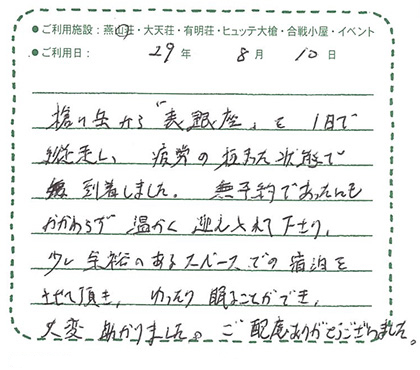 ●ご利用施設：燕山荘・大天荘・有明荘・ヒュッテ大槍・合戦小屋・イベント
●ご利用日： 29 年 8 月 10 日
槍ヶ岳から「表銀座」を1日で
縦走し、疲労の極まった状態で
到着しました。無予約であったにも
かかわらず 温かく 迎え入れて下さり、
少し余裕のあるスペースでの宿泊を
させて頂き、ゆったり眠ることができ、
大変 助かりました。ご配慮ありがとうございました。